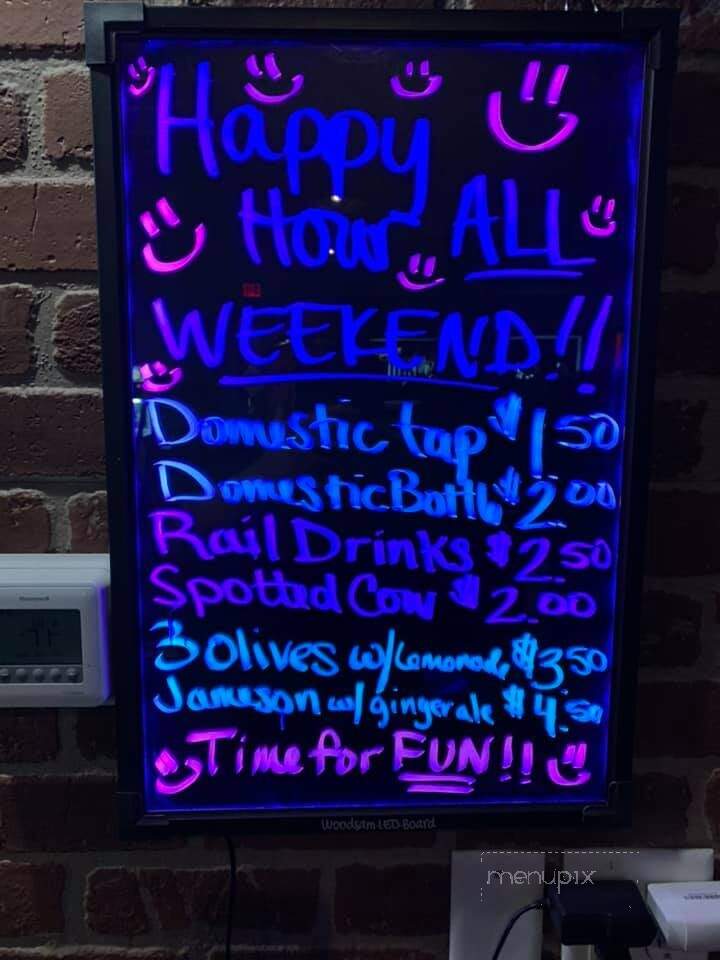 Happy
Hour ALL
WEEKEND!!
Domestic tap $1.50
Domestic Bottle $2.00
Rail Drinks $2.50
Spotted Cow $2.00
3 Olives w/Lemonade $3.50
Jameson w/gingerale $4.50
Time for FUN!!
Woodsam LED Board
Honeywell
menupix